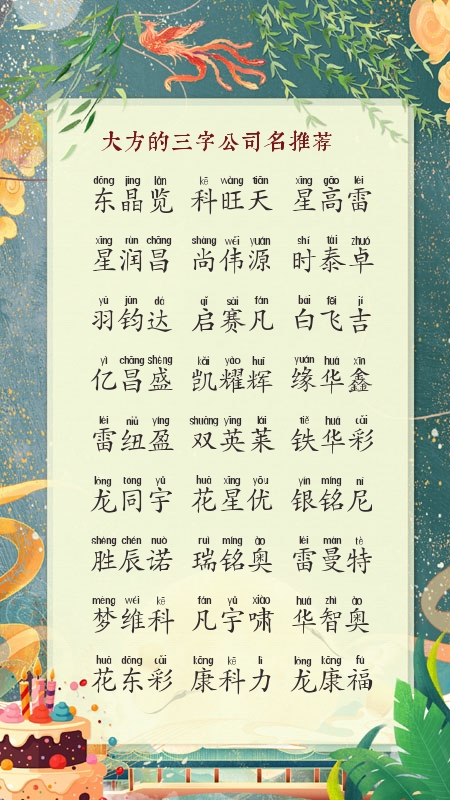 大方的三字公司名推荐
dōng jīng lǎn kē wàng tiān xīng gāo léi
东晶览 科旺天 星高雷
xīng rùn chāng shàng wěi yuán shí tài zhuó
星润昌 尚伟源 时泰卓
yǔ jūn dá qǐ sài fán bái fēi jí
羽钧达 启赛凡 白飞吉
yì chāng shèng kǎi yào huī yuán huá xīn
亿昌盛 凯耀辉 缘华鑫
léi niǔ yíng shuāng yīng lái tiě huá cǎi
雷纽盈 双英莱 铁华彩
lóng tóng yǔ huā xīng yōu yín míng ní
龙同宇 花星优 银铭尼
shèng chén nuò ruì míng ào léi màn tè
胜辰诺 瑞铭奥 雷曼特
mèng wéi kē fán yǔ xiào huá zhì ào
梦维科 凡宇啸 华智奥
huā dōng cǎi kāng kē lì lóng kāng fú
花东彩 康科力 龙康福